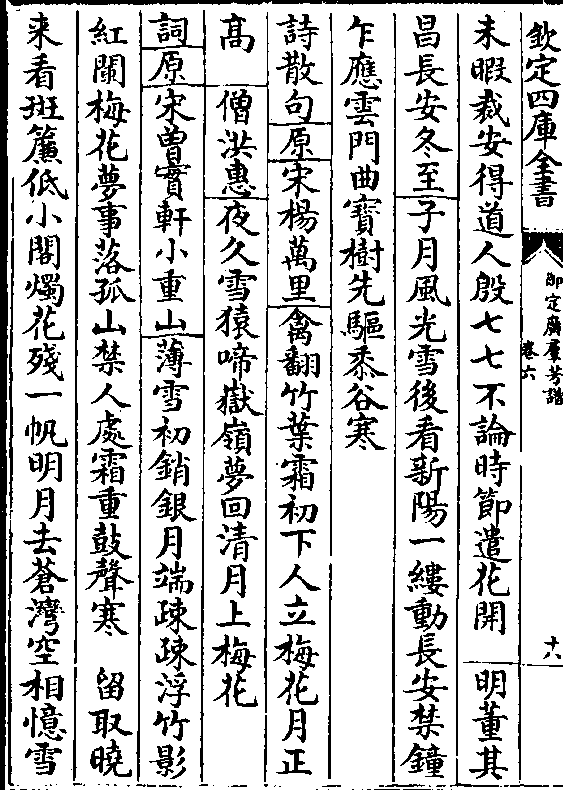 欽定四庫全書
御定廣羣芳譜
卷六
十六
未暇裁安得道人殷七七不論時節遣花開 明董其
昌長安冬至子月風光雪後看新陽一縷動長安禁鐘
乍應雲門曲寶樹先驅黍谷寒
詩散句原宋楊萬里禽翻竹葉霜初下人立梅花月正
高 僧洪惠夜久雪猿啼嶽嶺夢回清月上梅花
詞原宋曾實軒小重山薄雪初銷銀月端疎疎浮竹影
紅闌梅花夢事落孤山禁人處霜重鼓聲寒 留取曉
来看斑簾低小閣燭花殘一帆明月去蒼灣空相憶雪